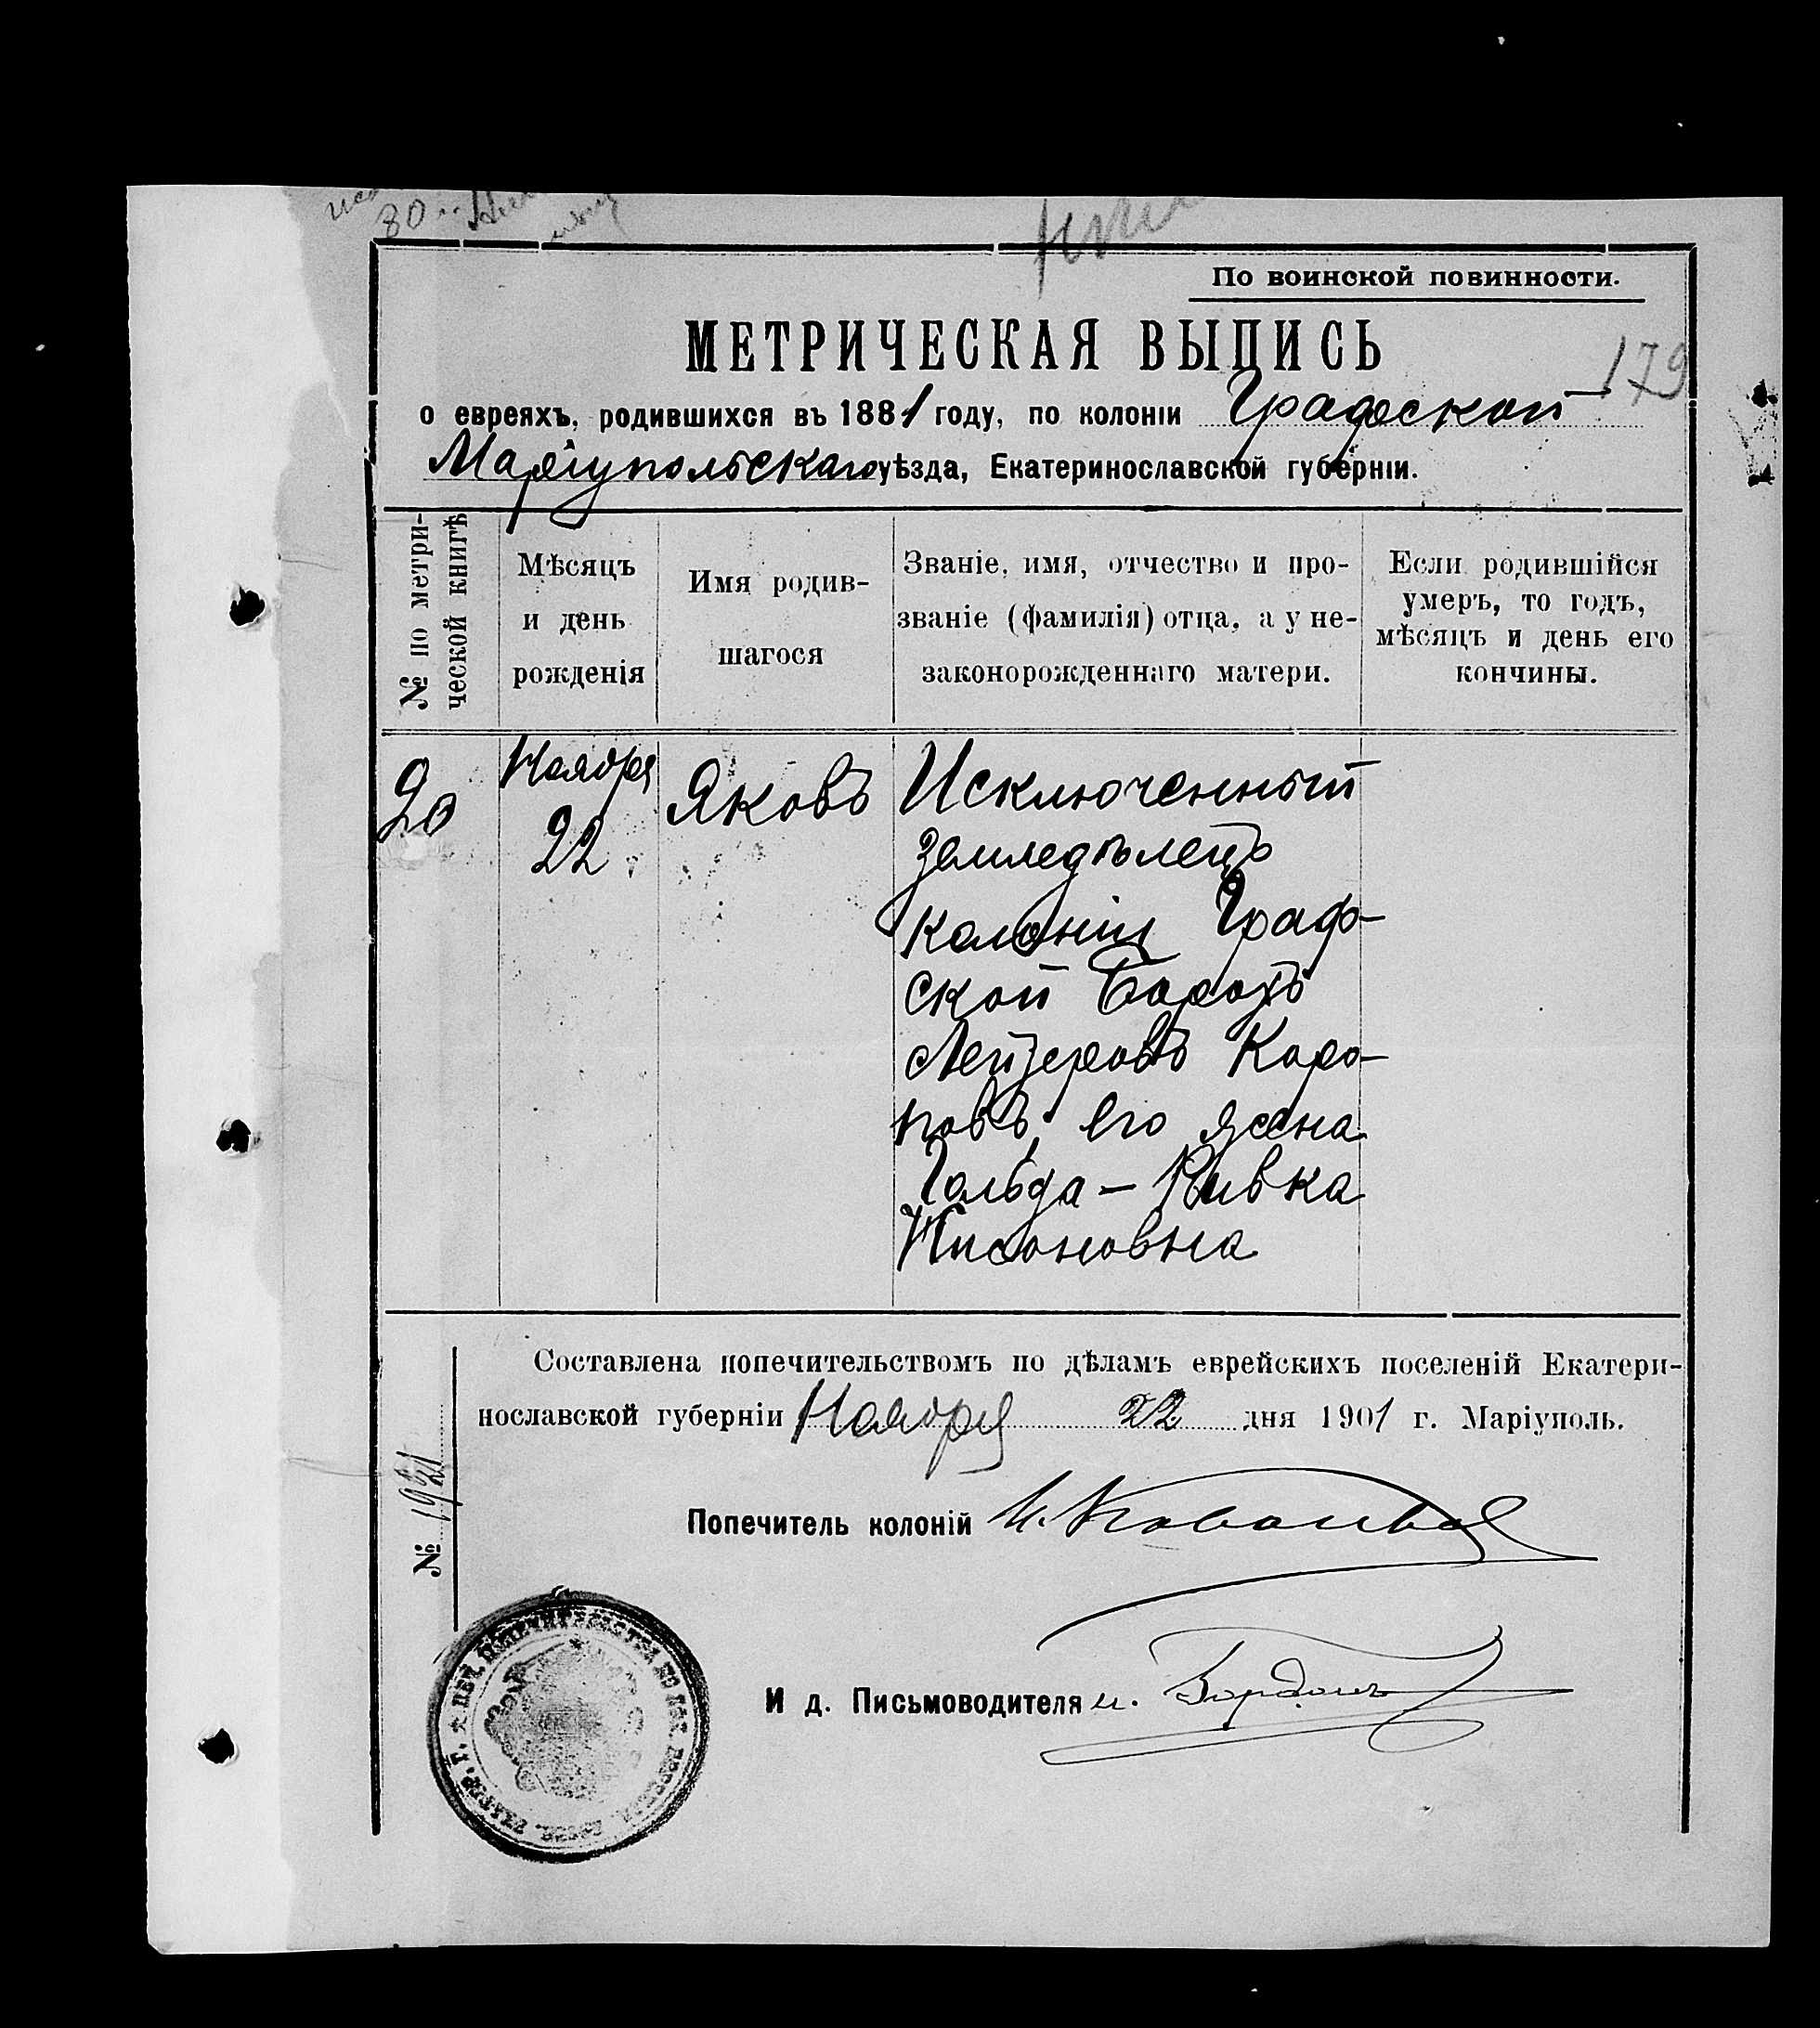 80
По воинской повинности.
179
МЕТРИЧЕСКАЯ ВЫПИСЬ
о евреяхъ, родившихся въ 1881 году, по колоніи Графской
Маріупольскаго уѣзда, Екатеринославской губерніи.
№ по метри-
ческой книгѣ
Мѣсяцъ
и день
рожденія
Имя родив-
шагося
Званіе, имя, отчество и про-
званіе (фамилія) отца, а у не-
законорожденнаго матери.
Если родившійся
умеръ, то годъ,
мѣсяцъ и день его
кончины.
20
Ноября
22
Яковъ
Исключенный
земледѣлецъ
колоніи Граф-
ской Борохъ
Лейзеровъ Каро-
повъ, его жена
Гольда - Ривка
Нисоновна
Составлена попечительствомъ по дѣламъ еврейскихъ поселеній Екатери-
нославской губерніи Ноября 22 дня 1901 г. Маріуполь.
№ 1921
Попечитель колоній И.
И д. Письмоводителя И. Гордонъ